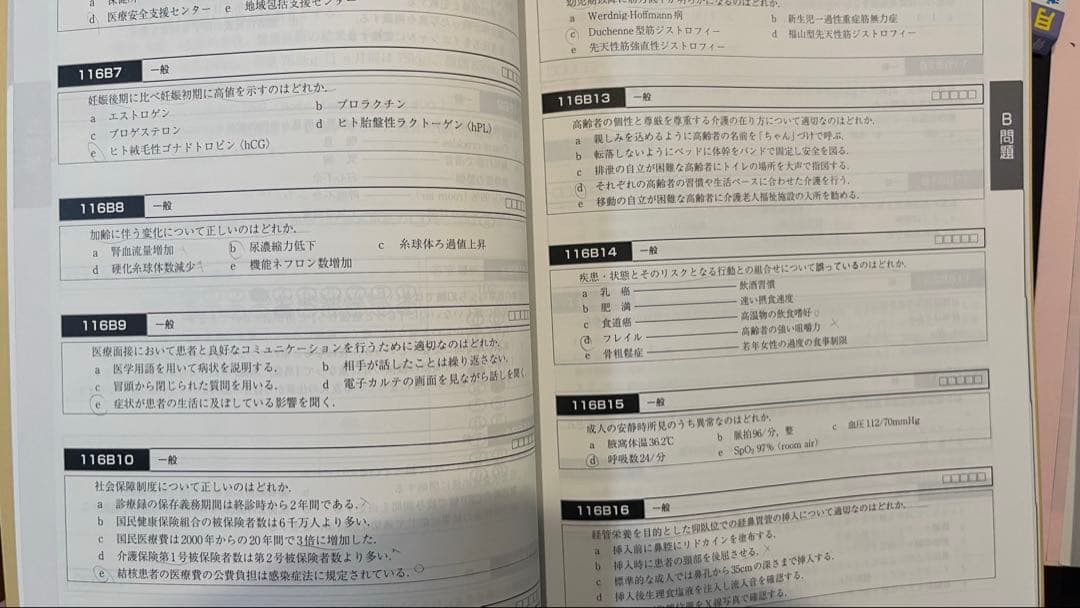 d 医療安全支援センター e 地域包括支援センター
116B7 一般
妊娠後期に比べ妊娠初期に高値を示すのはどれか.
a エストロゲン b プロラクチン
c プロゲステロン d ヒト胎盤性ラクトーゲン〈hPL〉
e ヒト絨毛性ゴナドトロピン〈hCG〉
116B8 一般
加齢に伴う変化について正しいのはどれか.
a 腎血流量増加 b 尿濃縮力低下 c 糸球体ろ過値上昇
d 硬化糸球体数減少 e 機能ネフロン数増加
116B9 一般
医療面接において患者と良好なコミュニケーションを行うために適切なのはどれか.
a 医学用語を用いて病状を説明する. b 相手が話したことは繰り返さない.
c 冒頭から閉じられた質問を用いる. d 電子カルテの画面を見ながら話しを聞く.
e 症状が患者の生活に及ぼしている影響を聞く.
116B10 一般
社会保障制度について正しいのはどれか.
a 診療録の保存義務期間は終診時から2年間である.
b 国民健康保険組合の被保険者数は6千万人より多い.
c 国民医療費は2000年からの20年間で3倍に増加した.
d 介護保険第1号被保険者数は第2号被保険者数より多い.
e 結核患者の医療費の公費負担は感染症法に規定されている.
a Werdnig-Hoffmann病 b 新生児一過性重症筋無力症
c Duchenne型筋ジストロフィー d 福山型先天性筋ジストロフィー
e 先天性筋強直性ジストロフィー
116B13 一般
高齢者の個性と尊厳を尊重する介護の在り方について適切なのはどれか.
a 親しみを込めるように高齢者の名前を「ちゃん」づけで呼ぶ.
b 転落しないようにベッドに体幹をバンドで固定し安全を図る.
c 排泄の自立が困難な高齢者にトイレの場所を大声で指図する.
d それぞれの高齢者の習慣や生活ペースに合わせた介護を行う.
e 移動の自立が困難な高齢者に介護老人福祉施設の入所を勧める.
B問題
116B14 一般
疾患・状態とそのリスクとなる行動との組合せについて誤っているのはどれか.
a 乳癌 飲酒習慣
b 肥満 速い摂食速度
c 食道癌 高温物の飲食嗜好
d フレイル 高齢者の強い咀嚼力
e 骨粗鬆症 若年女性の過度の食事制限
116B15 一般
成人の安静時所見のうち異常なのはどれか.
a 腋窩体温36.2℃ b 脈拍96/分, 整 c 血圧112/70mmHg
d 呼吸数24/分 e SpO₂ 97% (room air)
116B16 一般
経管栄養を目的とした仰臥位での経鼻胃管の挿入について適切なのはどれか.
a 挿入前に鼻腔にリドカインを塗布する.
b 挿入時に患者の頸部を後屈させる.
c 標準的な成人では鼻孔から35cmの深さまで挿入する.
d 挿入後生理食塩液を注入し流入音を確認する.
X線写真で確認する.